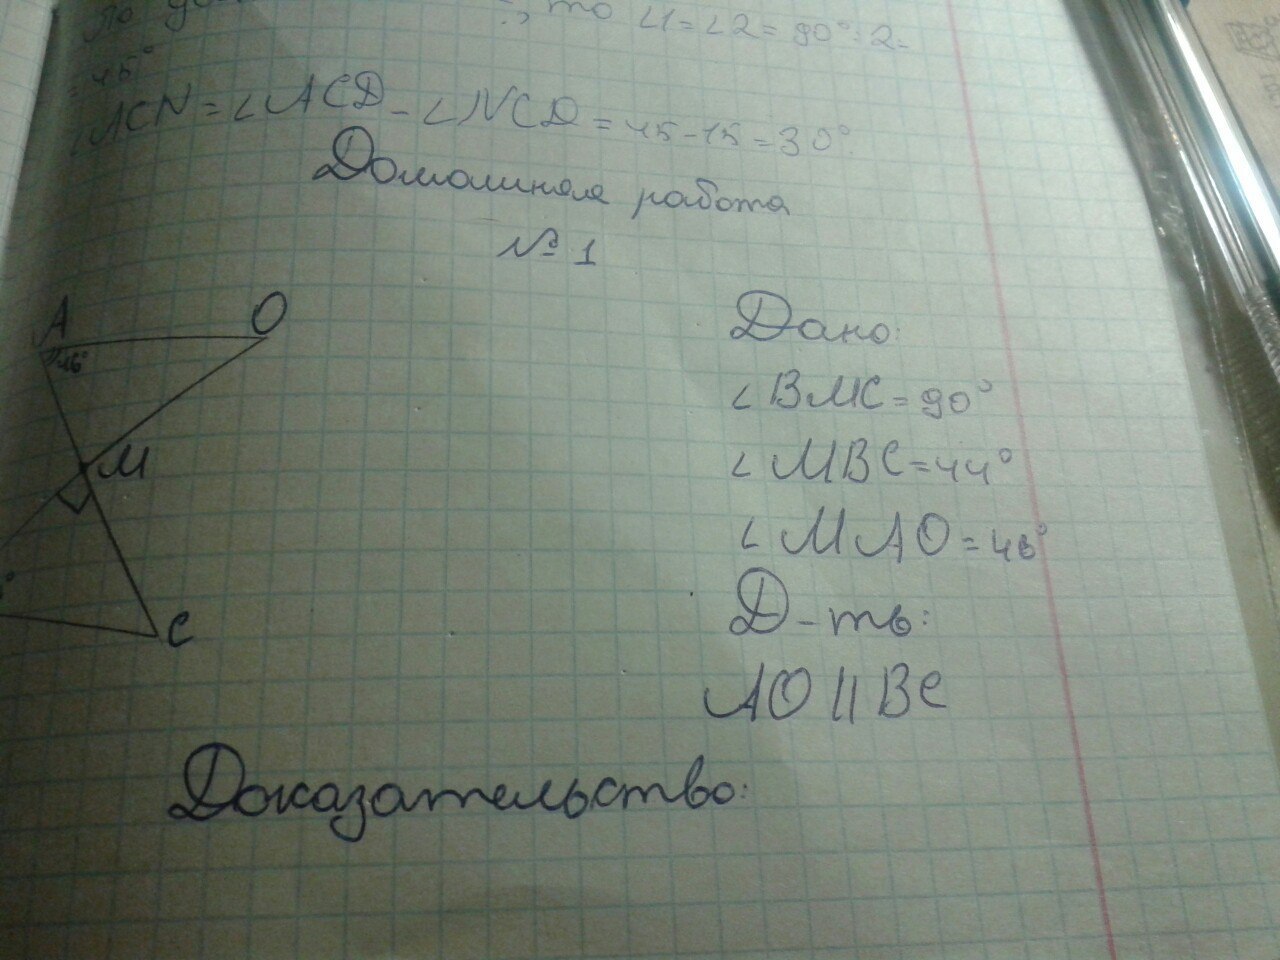 По
то ∠1=∠2=90°:2=
=45°
∠ACN=∠ACD-∠NCD=45-15=30°
Домашняя работа
№1
A
O
46°
M
C
Дано:
∠BMC=90°
∠MBC=44°
∠MAO=46°
Д-ть:
AO||BC
Доказательство: